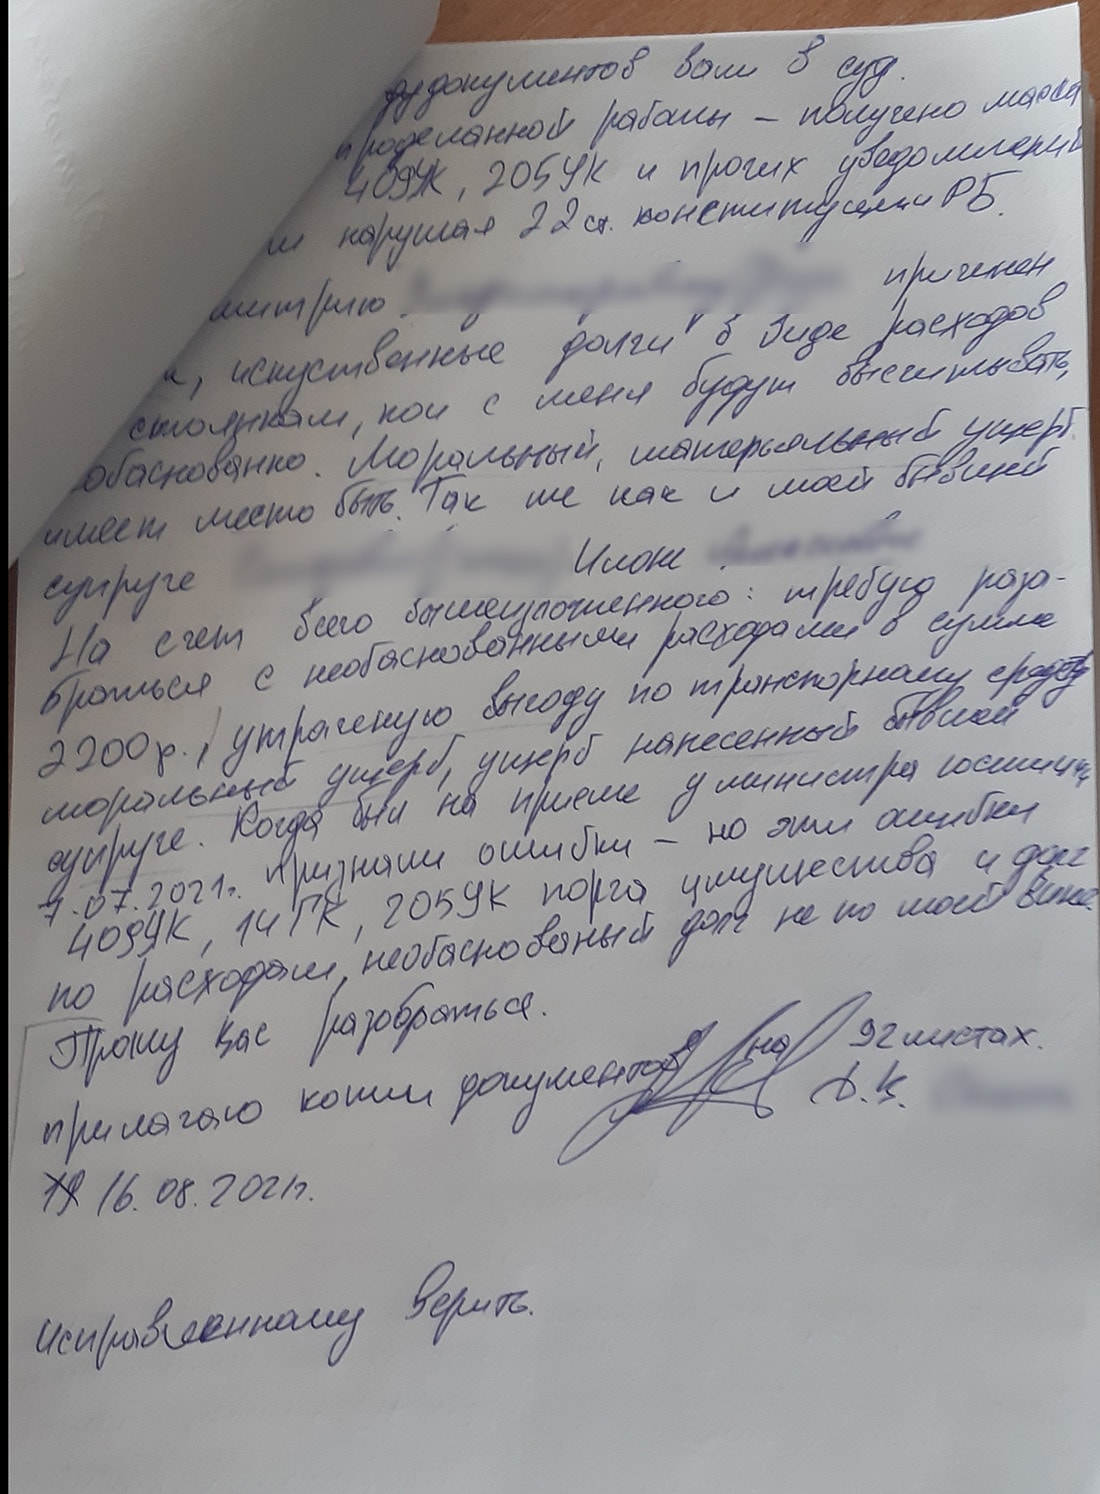 документов вам в суд.
проделанной работы – получено масса
409УК, 205УК и прочих уведомлений
нарушая 22 ст. конституции РБ.
причинен
искуственные долги в виде расходов
стоянкам, кои с меня будут высчитывать,
обаснованно. Моральный, матерьяльный ущерб.
имеет место быть. Так же как и моей бывшей
супруге
На счет всего вышеизложенного: требую разо-
браться с необаснованными расходами в сумме
2200р., утраченую выгоду по транспорному средству
моральный ущерб, ущерб нанесенный бывшей
супруге. Когда был на приеме у министра юстиции
7.07.2021г. признали ошибки – но эти ошибки
409УК, 14ГК, 205УК порча имущества и долг
по расходам, необаснованый долг не по моей вине.
Прошу вас разобраться.
прилагаю копии документов на 92 листах.
Д.В.
16.08.2021г.
исправленному верить.